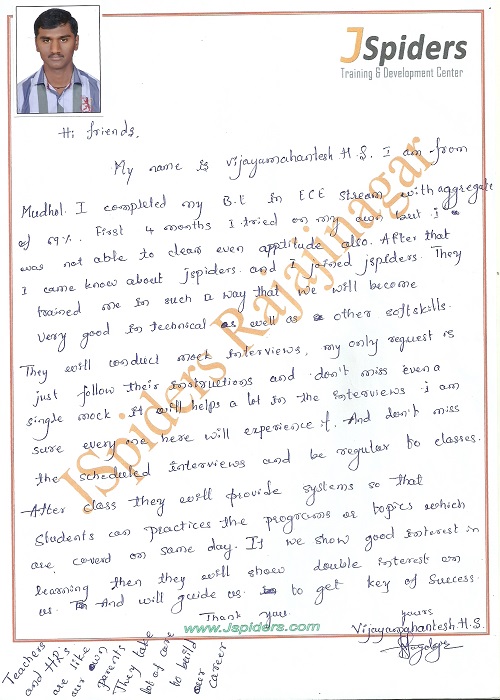 JSpiders
Training & Development Center
Hi friends,
My name is Vijayamahantesh H.S. I am from
Mudhol. I completed my B.E in ECE Stream with aggregate
of 69%. First 4 months I tried on my own but i
was not able to clear even apptitude also. After that
I came know about jspiders. and I joined jspiders. They
trained me in such a way that we will become
very good in technical as well as other softskills.
They will conduct mock interviews, my only request is
just follow their instructions and don't miss even a
single mock it will helps a lot in the interviews i am
sure every one here will experience it. And don't miss
the scheduled interviews and be regular to classes.
After class they will provide systems so that
students can practices the programs or topics which
are coverd on same day. If we show good interest in
learning then they will show double interest on
us. And will guide us to get key of success.
Thank you
yours
Vijayamahantesh.H.S.
www.Jspiders.com
Teachers
and HR's
are like
our own
parents
They take
lot of care
to build
our
career
JSpiders Rajajinagar